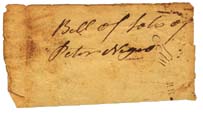 Bill of Sale of
Peter Negro